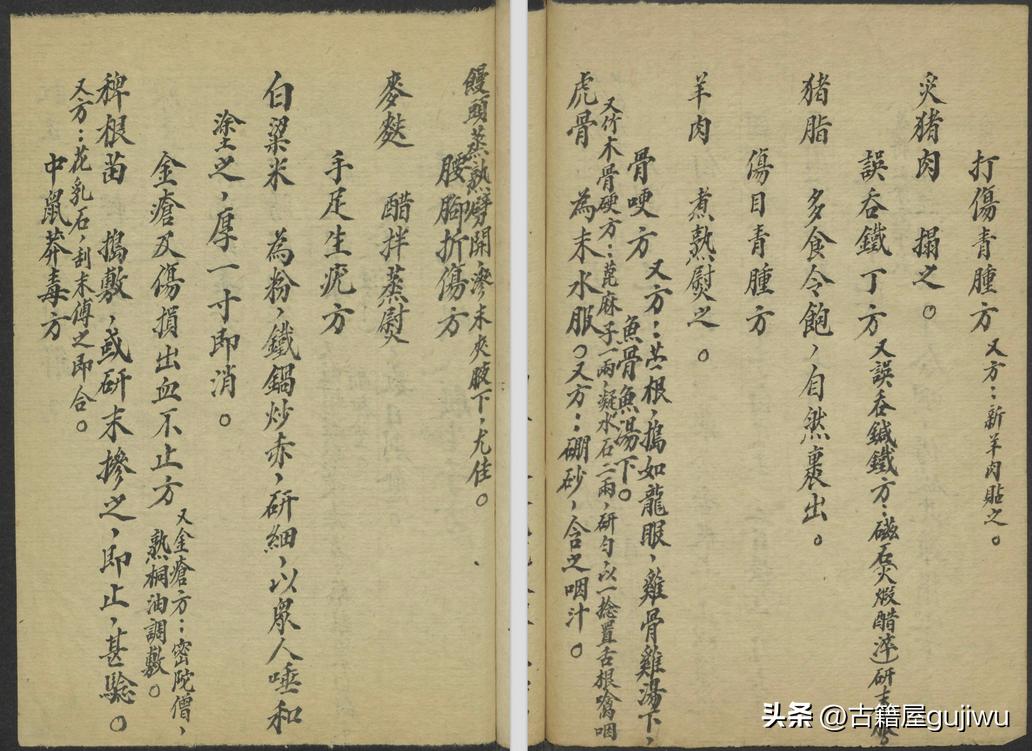 打傷青腫方 又方：新羊肉貼之。
炙猪肉 搨之。
誤吞鐵丁方 又誤吞鍼鐵方：磁石火煅醋淬研末服。
猪脂 多食令飽，自然裹出。
傷目青腫方
羊肉 煮熟熨之。
骨哽方 又方：苎根，搗如龍眼，雞骨雞湯下，
魚骨魚湯下。
又竹木骨硬方：萆麻子一兩，凝水石二兩，研勻，以一捻置舌根噙咽
虎骨 為末水服。又方：硼砂，含之咽汁。
饅頭蒸熟劈開滲末夾腋下，尤佳。
腰胸折傷方
麥麩 醋拌蒸熨
手足生疣方
白粱米 為粉，鐵鍋炒赤，研細，以眾人唾和
塗之，厚一寸即消。
金瘡及傷損出血不止方 又金瘡方：密陀僧，
熟桐油調敷。
稗根苗 搗敷，或研末摻之，即止，甚驗。
又方：花乳石，刮末傅之即合。
中鼠莽毒方
头条 @古籍屋gujiwu